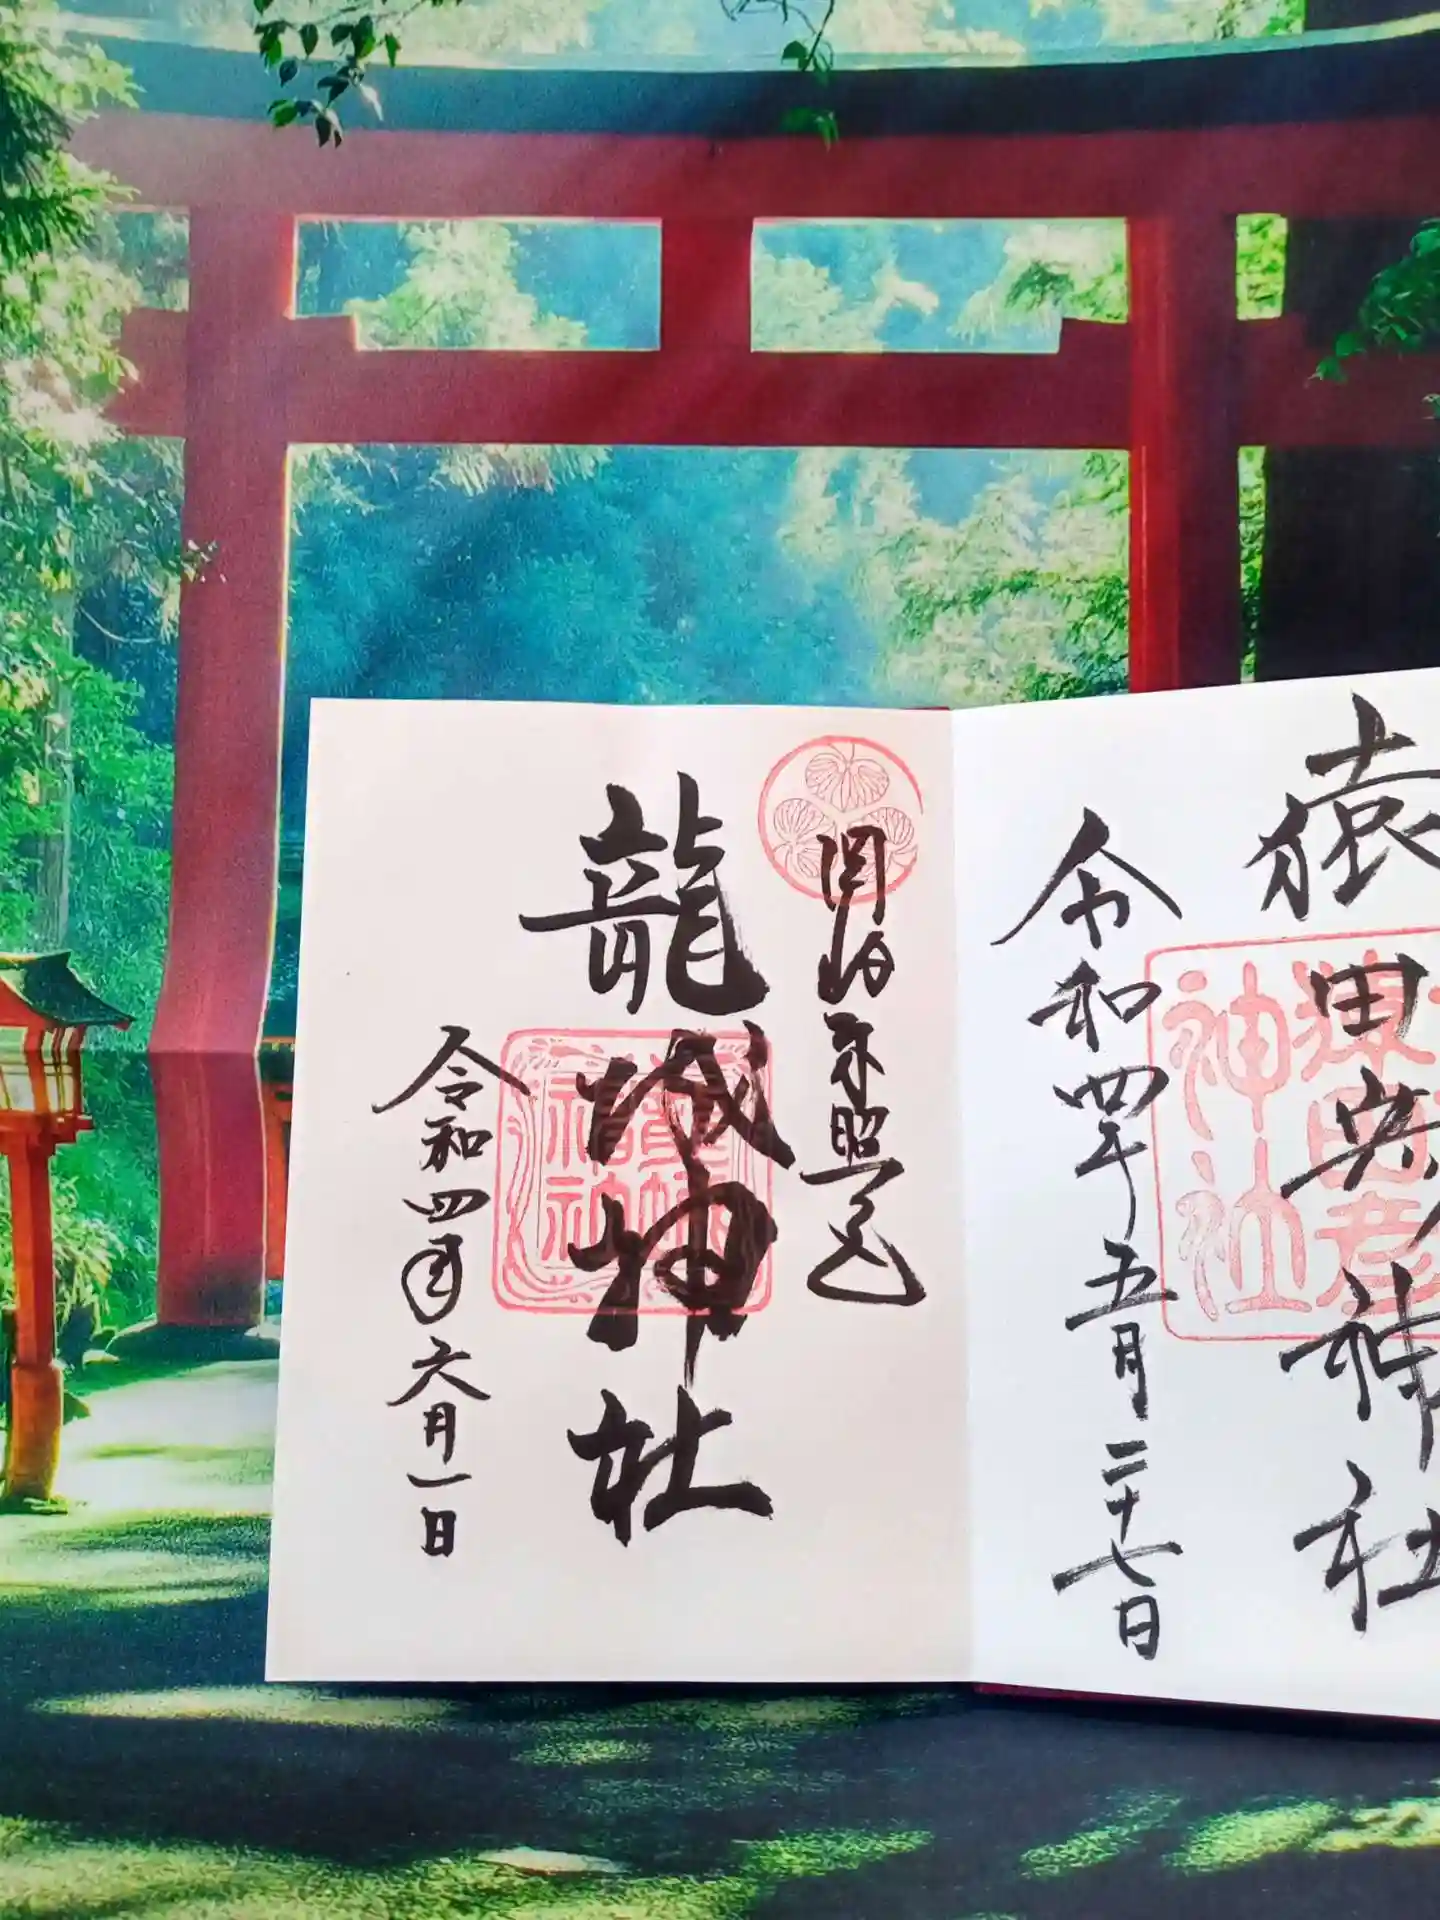 猿田彦神社
令和四年五月二十七日
岡崎東照公
龍城神社
令和四年六月一日